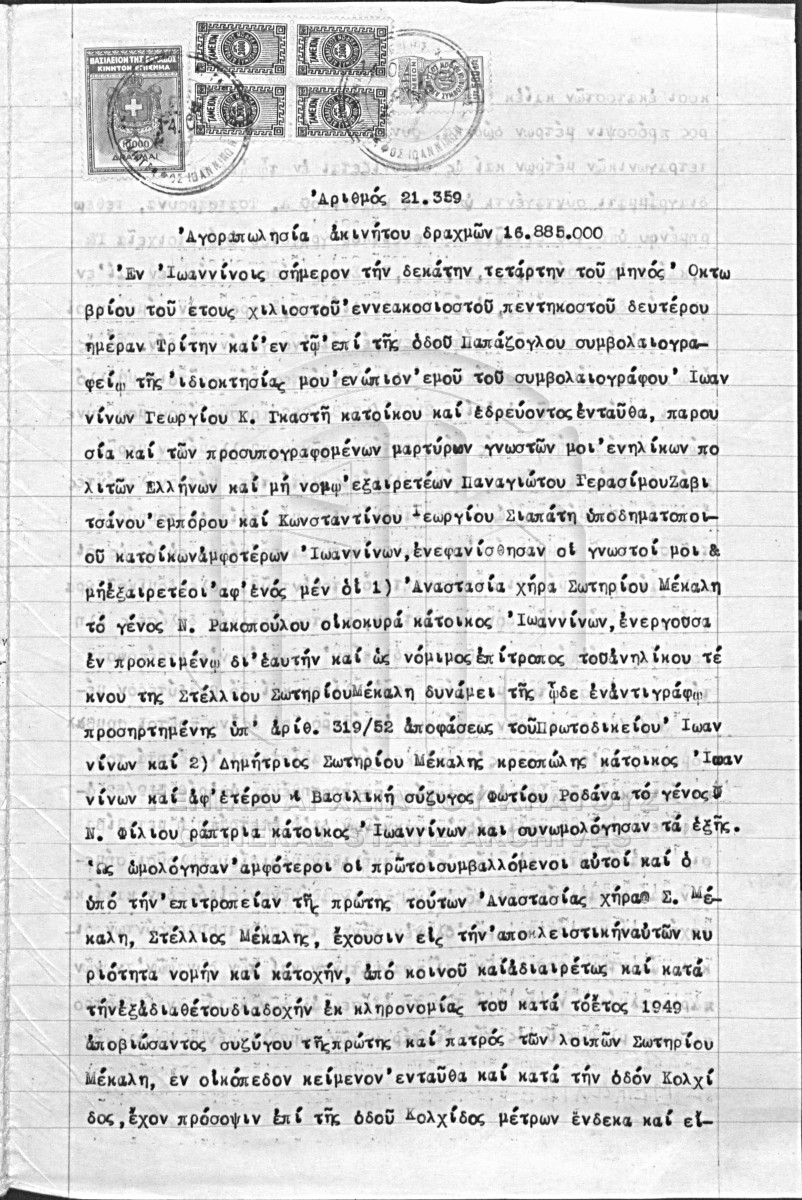 ΒΑΣΙΛΕΙΟΝ ΤΗΣ ΕΛΛΑΔΟΣ
ΚΙΝΗΤΟΝ ΕΠΙΣΗΜΑ
1000
ΔΡΑΧΜΑΙ
ΤΑΜΕΙΟΝ ΤΑΜΕΙΟΝ
ΤΑΜΕΙΟΝ ΤΑΜΕΙΟΝ
Ἀριθμός 21.359
Ἀγοραπωλησία ἀκινήτου δραχμῶν 16.885.000
Ἐν Ἰωαννίνοις σήμερον τήν δεκάτην τετάρτην τοῦ μηνός Ὀκτω
βρίου τοῦ ἔτους χιλιοστοῦ ἐννεακοσιοστοῦ πεντηκοστοῦ δευτέρου
ἡμέραν Τρίτην καί ἐν τῷ ἐπί τῆς ὁδοῦ Παπάζογλου συμβολαιογρα-
φείῳ τῆς ἰδιοκτησίας μου ἐνώπιον ἐμοῦ τοῦ συμβολαιογράφου Ἰωαν
νίνων Γεωργίου Κ. Γκαστῆ κατοίκου καί ἑδρεύοντος ἐνταῦθα, παρου
σία καί τῶν προσυπογραφομένων μαρτύρων γνωστῶν μοι ἐνηλίκων πο
λιτῶν Ἑλλήνων καί μή νομῳ ἐξαιρετέων Παναγιώτου Γερασίμου Ζαβι
τσάνου ἐμπόρου καί Κωνσταντίνου Γεωργίου Σιαπάτη ὑποδηματοποι-
οῦ κατοίκων ἀμφοτέρων Ἰωαννίνων, ἐνεφανίσθησαν οἱ γνωστοί μοι &
μή ἐξαιρετέοι ἀφ' ἑνός μέν οἱ 1) Ἀναστασία χήρα Σωτηρίου Μέκαλη
τό γένος Ν. Ρακοπούλου οἰκοκυρά κάτοικος Ἰωαννίνων, ἐνεργοῦσα
ἐν προκειμένῳ δι' ἑαυτήν καί ὡς νόμιμος ἐπίτροπος τοῦ ἀνηλίκου τέ
κνου της Στέλλιου Σωτηρίου Μέκαλη δυνάμει τῆς ὧδε ἐν ἀντιγράφῳ
προσηρτημένης ὑπ' ἀρίθ. 319/52 ἀποφάσεως τοῦ Πρωτοδικείου Ἰωαν
νίνων καί 2) Δημήτριος Σωτηρίου Μέκαλης κρεοπώλης κάτοικος Ἰωαν
νίνων καί ἀφ' ἑτέρου ἡ Βασιλική σύζυγος Φωτίου Ροδάνα τό γένος
Ν. Φίλιου ράπτρια κάτοικος Ἰωαννίνων και συνωμολόγησαν τά ἑξῆς.
Ὡς ὡμολόγησαν ἀμφότεροι οἱ πρῶτοι συμβαλλόμενοι αὐτοί καί ὁ
ὑπό τήν ἐπιτροπείαν τῆς πρώτης τούτων Ἀναστασίας χήρας Σ. Μέ-
καλη, Στέλλιος Μέκαλης, ἔχουσιν εἰς τήν ἀποκλειστικήν αὐτῶν κυ
ριότητα νομήν καί κατοχήν, ἀπό κοινοῦ καί ἀδιαιρέτως καί κατά
τήν ἐξ ἀδιαθέτου διαδοχήν ἐκ κληρονομίας τοῦ κατά τό ἔτος 1949
ἀποβιώσαντος συζύγου τῆς πρώτης καί πατρός τῶν λοιπῶν Σωτηρίου
Μέκαλη, ἕν οἰκόπεδον κείμενον ἐνταῦθα καί κατά τήν ὁδόν Κολχί
δος, ἔχον πρόσοψιν ἐπί τῆς ὁδοῦ Κολχίδος μέτρων ἕνδεκα καί εἴ-